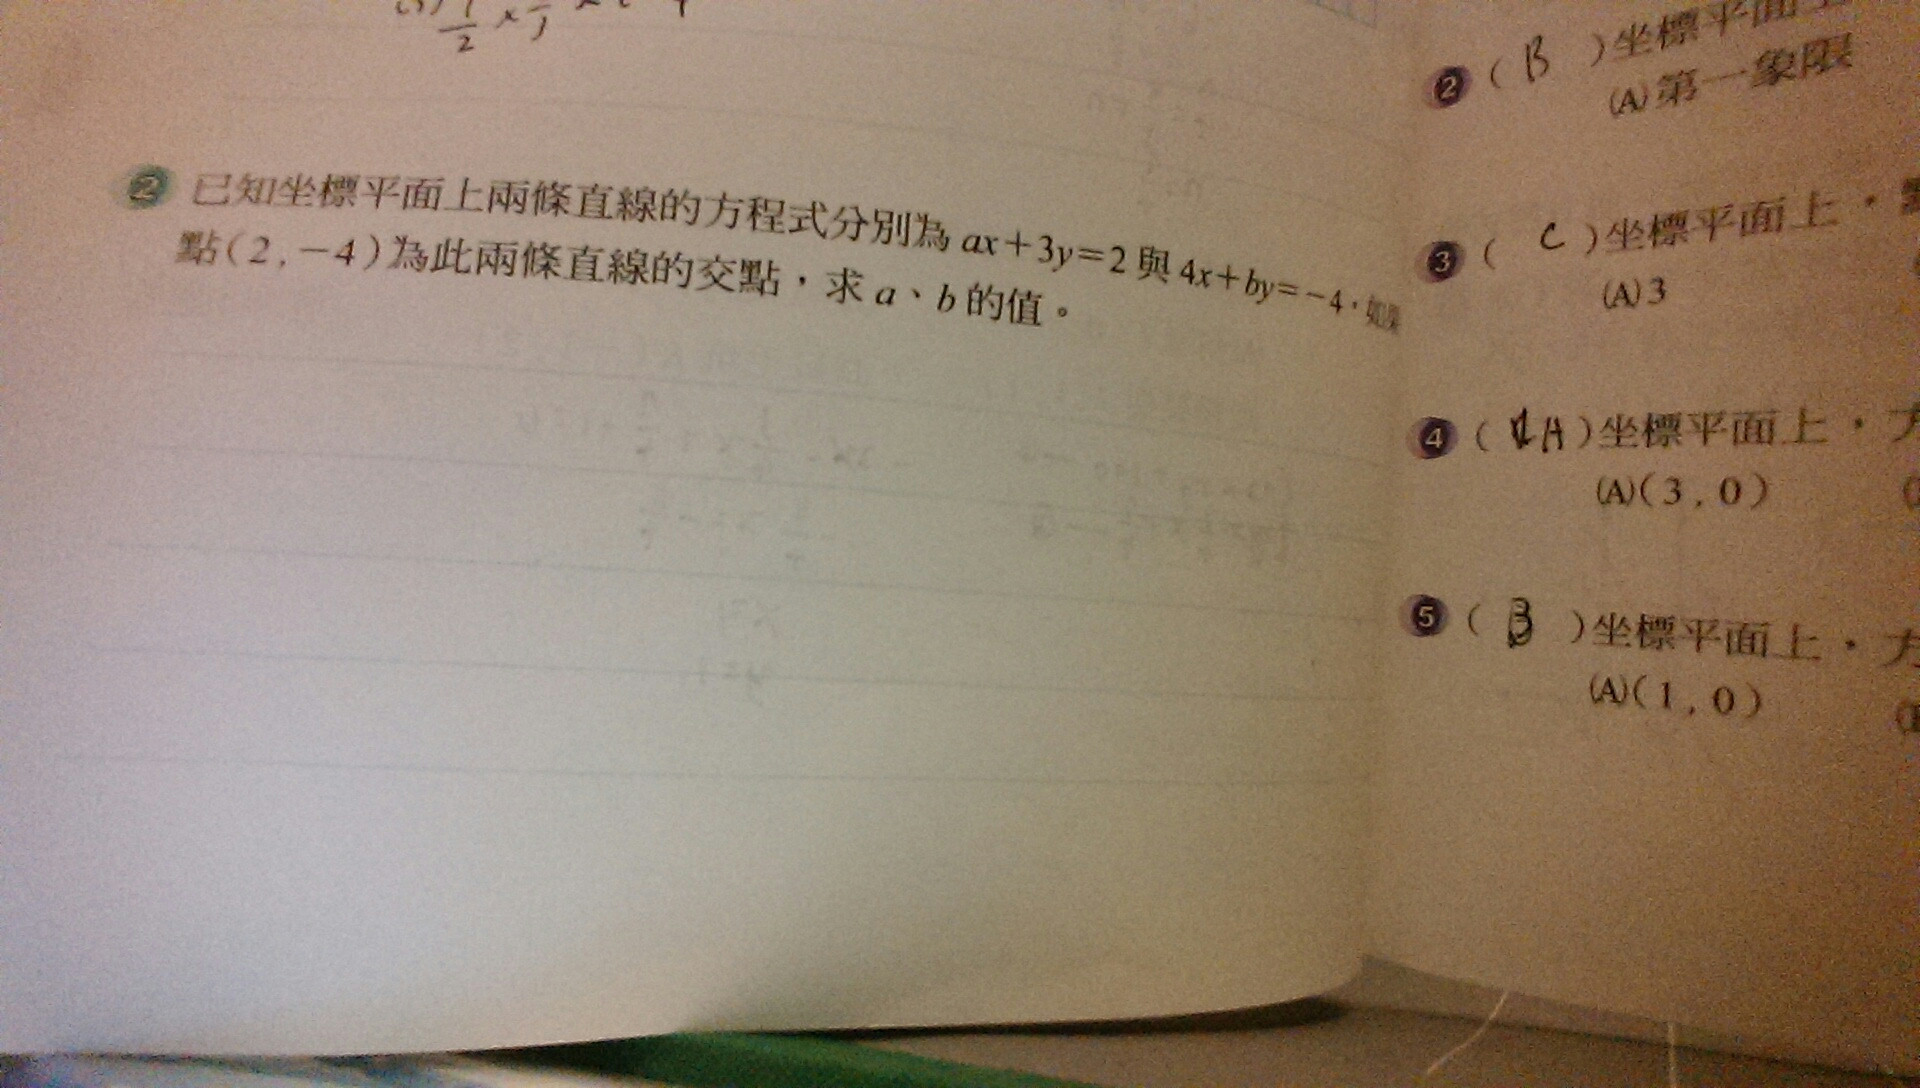 2
② 已知坐標平面上兩條直線的方程式分別為 ax+3y=2 與 4x+by=-4,如果
點(2,-4)為此兩條直線的交點,求 a、b 的值。
❷ ( B )坐標平面上
(A)第一象限
❸ ( C )坐標平面上,
(A)3
❹ ( A )坐標平面上,方
(A)(3,0)
❺ ( B )坐標平面上,方
(A)(1,0)